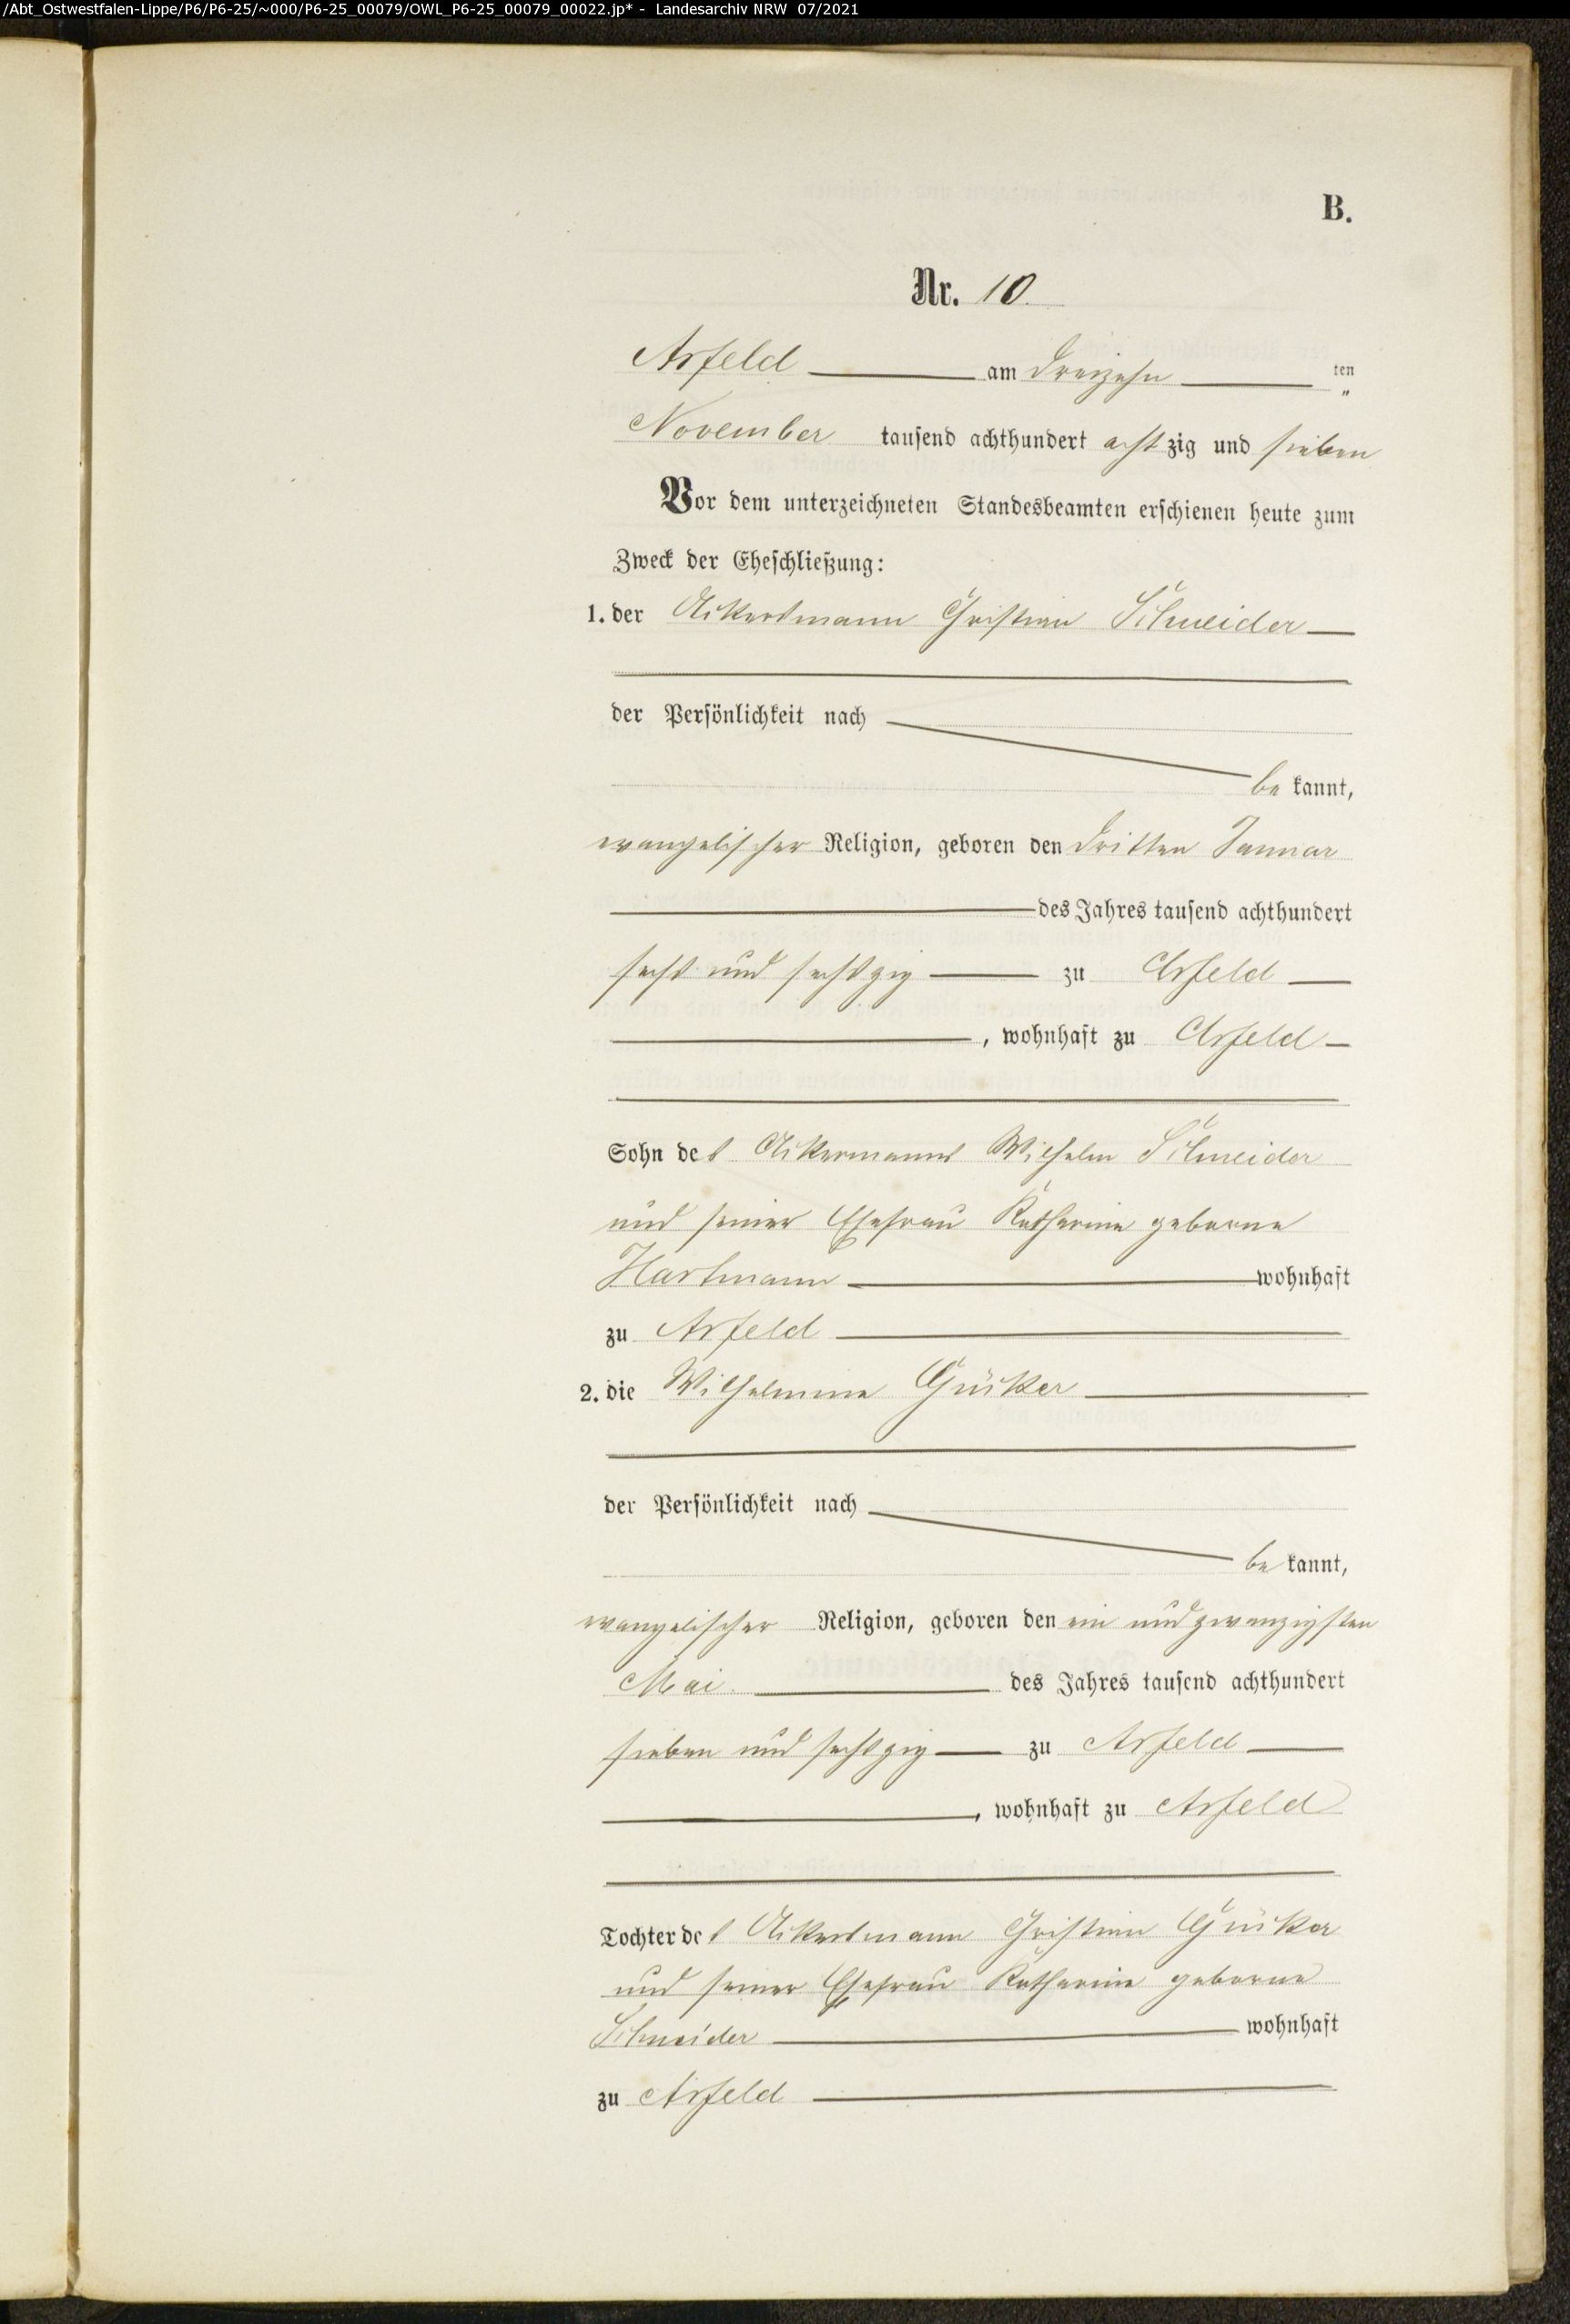 /Abt_Ostwestfalen-Lippe/P6/P6-25/~000/P6-25_00079/OWL_P6-25_00079_00022.jp* - Landesarchiv NRW 07/2021
B.
Nr. 10.
Arfeld am dreizehn ten
November tausend achthundert achtzig und sieben
Vor dem unterzeichneten Standesbeamten erschienen heute zum
Zweck der Eheschließung:
1. der Ackersmann Christian Schneider
der Persönlichkeit nach
bekannt,
evangelischer Religion, geboren den dritten Januar
des Jahres tausend achthundert
sechs und sechszig zu Arfeld
, wohnhaft zu Arfeld
Sohn des Ackermanns Wilhelm Schneider
und seiner Ehefrau Katharine geborne
Hartmann wohnhaft
zu Arfeld
2. die Wilhelmine Gücker
der Persönlichkeit nach
bekannt,
evangelischer Religion, geboren den ein und zwanzigsten
Mai des Jahres tausend achthundert
sieben und sechszig zu Arfeld
, wohnhaft zu Arfeld
Tochter des Ackersmann Christian Gücker
und seiner Ehefrau Katharine geborne
Schneider wohnhaft
zu Arfeld